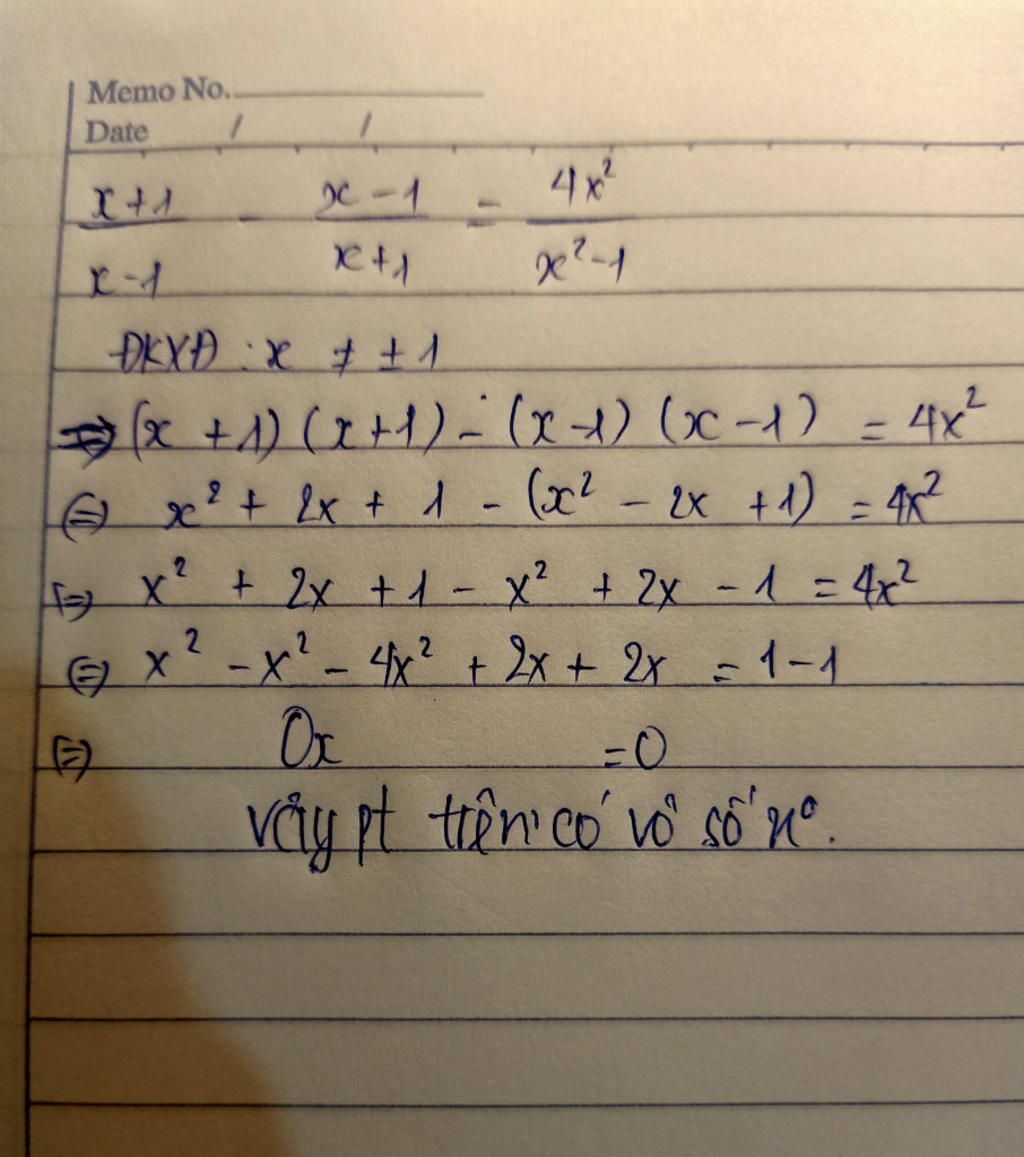 Memo No.
Date / /
x+1 / x-1 - x-1 / x+1 = 4x² / x²-1
ĐKXĐ : x ≠ ± 1
=> (x +1) (x+1) - (x-1) (x-1) = 4x²
(=) x² + 2x + 1 - (x² - 2x +1) = 4x²
(=) x² + 2x +1 - x² + 2x - 1 = 4x²
(=) x² - x² - 4x² + 2x + 2x = 1-1
(=) 0x =0
vậy pt trên có vô số n⁰.